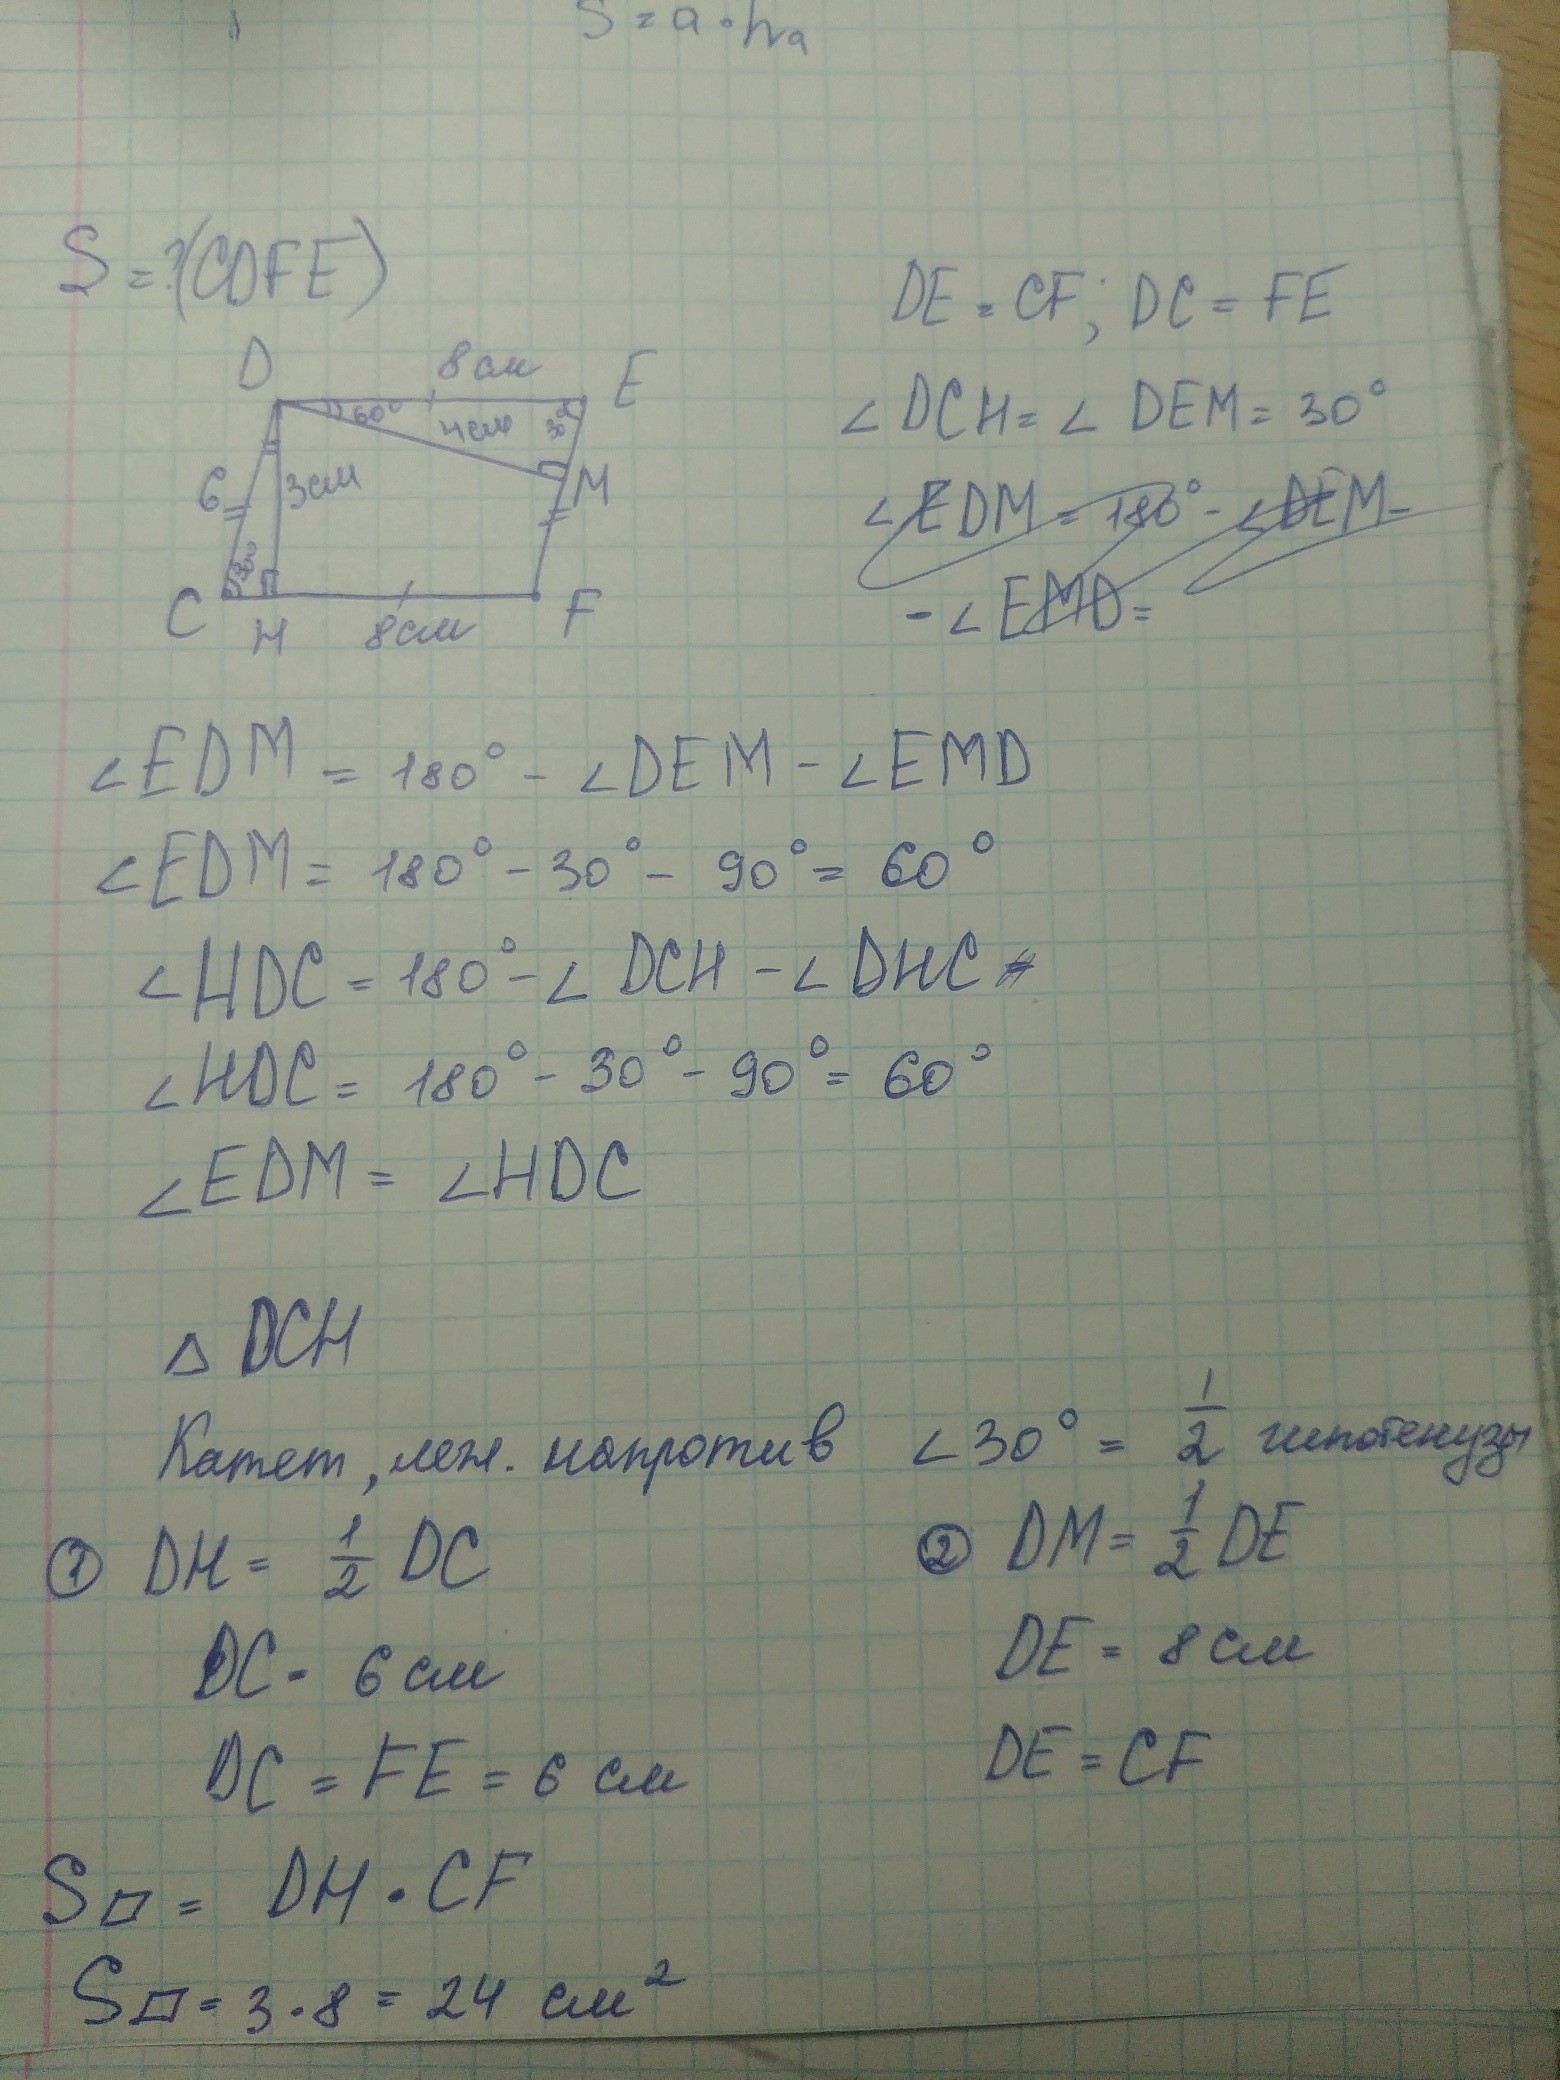 S = a · hₐ
S = ?(CDFE)
DE = CF; DC = FE
D 8 см E
60° 4 см 30°
6 3 см M
30°
C H 8 см F
∠DCH = ∠DEM = 30°
∠EDM = 180° - ∠DEM -
- ∠EMD =
∠EDM = 180° - ∠DEM - ∠EMD
∠EDM = 180° - 30° - 90° = 60°
∠HDC = 180° - ∠DCH - ∠DHC
∠HDC = 180° - 30° - 90° = 60°
∠EDM = ∠HDC
△ DCH
Катет, леж. напротив ∠30° = 1/2 гипотенузы
① DH = 1/2 DC
② DM = 1/2 DE
DC = 6 см
DE = 8 см
DC = FE = 6 см
DE = CF
S▱ = DH · CF
S▱ = 3 · 8 = 24 см²